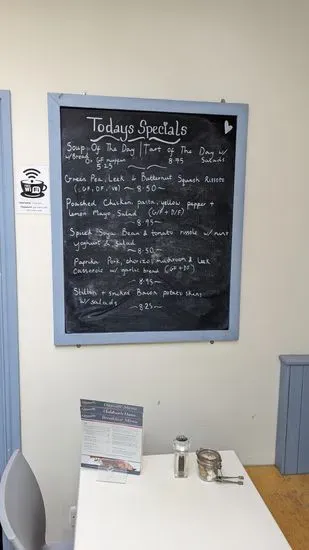 Todays Specials
Soup Of The Day | Tart Of The Day w/
w/Bread Or GF muffin 8.95 Salads
5.25
Green Pea, Leek & Butternut Squash Risotto
(GF, DF, VG) ~ 8.50 ~
Poached Chicken pasta, yellow pepper +
lemon Mayo, Salad (W/F + D/F)
~ 8.95 ~
Spiced Soya Bean & tomato rissole w/ mint
yoghurt & Salad
~ 8.50 ~
Paprika Pork, chorizo, mushroom & Leek
Casserole w/ garlic bread (GF + DF)
~ 8.95 ~
Stilton + smoked Bacon potato skins
w/ salads
~ 8.25 ~
WiFi